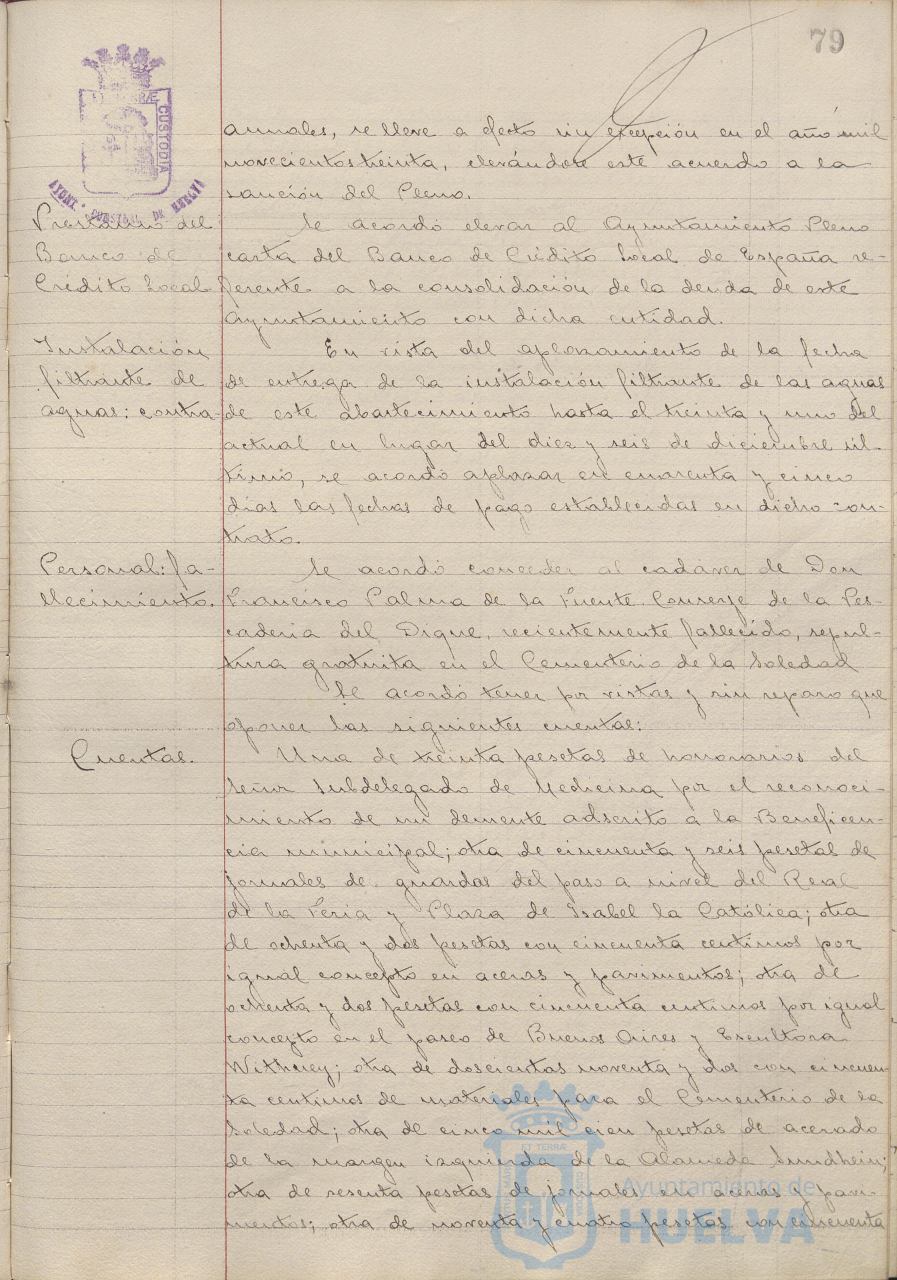 79
TERRÆ
CUSTODIA
AYUNT. CONSTNAL DE HUELVA
anuales, se lleve a efecto sin excepción en el año mil
novecientos treinta, elevándose este acuerdo a la
sanción del Pleno.
Prestamo del
Banco de
Crédito Local
Se acordó elevar al Ayuntamiento Pleno
carta del Banco de Crédito Local de España re-
ferente a la consolidación de la deuda de este
Ayuntamiento con dicha entidad.
Instalación
filtrante de
aguas: contra-
En vista del aplazamiento de la fecha
de entrega de la instalación filtrante de las aguas
de este abastecimiento hasta el treinta y uno del
actual en lugar del diez y seis de diciembre úl-
timo, se acordó aplazar en cuarenta y cinco
días las fechas de pago establecidas en dicho con-
trato.
Personal: fa-
llecimiento.
Se acordó conceder al cadáver de Don
Francisco Palma de la Fuente, Conserje de la Pes-
cadería del Dique, recientemente fallecido, sepul-
tura gratuita en el Cementerio de la Soledad
Se acordó tener por vistas y sin reparo que
oponer las siguientes cuentas:
Cuentas.
Una de treinta pesetas de honorarios del
Señor Subdelegado de Medicina por el reconoci-
miento de un demente adscrito a la Beneficen-
cia municipal; otra de cincuenta y seis pesetas de
jornales de guardas del paso a nivel del Real
de la Feria y Plaza de Isabel la Católica; otra
de ochenta y dos pesetas con cincuenta centimos por
igual concepto en aceras y pavimentos; otra de
ochenta y dos pesetas con cincuenta centimos por igual
concepto en el paseo de Buenos Aires y Escultora
Withney; otra de doscientas noventa y dos con cincuen-
ta centimos de materiales para el Cementerio de la
Soledad; otra de cinco mil cien pesetas de acerado
de la margen izquierda de la Alameda Sundhein;
otra de sesenta pesetas de jornales en aceras y pavi-
mentos; otra de noventa y cuatro pesetas con cincuenta
ET TERRÆ
Ayuntamiento de
HUELVA